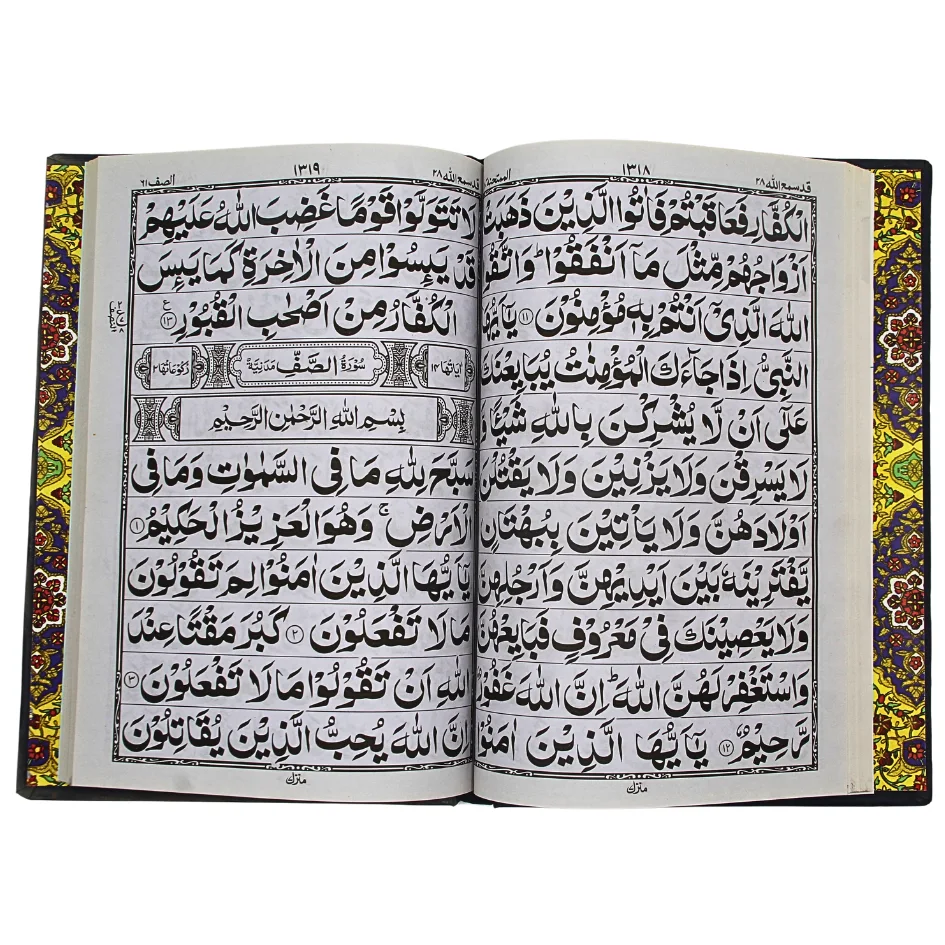 قد سمع الله ٢٨
١٣١٨
الممتحنة
الْكُفَّارِ فَعَاقَبْتُمْ فَاٰتُوا الَّذِيْنَ ذَهَبَتْ
اَزْوَاجُهُمْ مِّثْلَ مَاۤ اَنْفَقُوْا ؕ وَاتَّقُوا
اللّٰهَ الَّذِيْۤ اَنْتُمْ بِهٖ مُؤْمِنُوْنَ ﴿١١﴾ يٰۤاَيُّهَا
النَّبِيُّ اِذَا جَآءَكَ الْمُؤْمِنٰتُ يُبَايِعْنَكَ
عَلٰۤى اَنْ لَّا يُشْرِكْنَ بِاللّٰهِ شَيْـًٔا وَّ
لَا يَسْرِقْنَ وَلَا يَزْنِيْنَ وَلَا يَقْتُلْنَ
اَوْلَادَهُنَّ وَلَا يَاْتِيْنَ بِبُهْتَانٍ
يَّفْتَرِيْنَهٗ بَيْنَ اَيْدِيْهِنَّ وَاَرْجُلِهِنَّ
وَلَا يَعْصِيْنَكَ فِيْ مَعْرُوْفٍ فَبَايِعْهُنَّ
وَاسْتَغْفِرْ لَهُنَّ اللّٰهَ ؕ اِنَّ اللّٰهَ غَفُوْرٌ
رَّحِيْمٌ ﴿١٢﴾ يٰۤاَيُّهَا الَّذِيْنَ اٰمَنُوْا
قد سمع الله ٢٨
١٣١٩
الصف ٦١
لَا تَتَوَلَّوْا قَوْمًا غَضِبَ اللّٰهُ عَلَيْهِمْ
قَدْ يَئِسُوْا مِنَ الْاٰخِرَةِ كَمَا يَئِسَ
الْكُفَّارُ مِنْ اَصْحٰبِ الْقُبُوْرِ ﴿١٣﴾ ع
اٰيَاتُهَا ١٤ سُوْرَةُ الصَّفِّ مَدَنِيَّةٌ رُكُوْعَاتُهَا ٢
بِسْمِ اللّٰهِ الرَّحْمٰنِ الرَّحِيْمِ
سَبَّحَ لِلّٰهِ مَا فِي السَّمٰوٰتِ وَمَا فِي
الْاَرْضِ ۚ وَهُوَ الْعَزِيْزُ الْحَكِيْمُ ﴿١﴾
يٰۤاَيُّهَا الَّذِيْنَ اٰمَنُوْا لِمَ تَقُوْلُوْنَ
مَا لَا تَفْعَلُوْنَ ﴿٢﴾ كَبُرَ مَقْتًا عِنْدَ
اللّٰهِ اَنْ تَقُوْلُوْا مَا لَا تَفْعَلُوْنَ ﴿٣﴾
اِنَّ اللّٰهَ يُحِبُّ الَّذِيْنَ يُقَاتِلُوْنَ